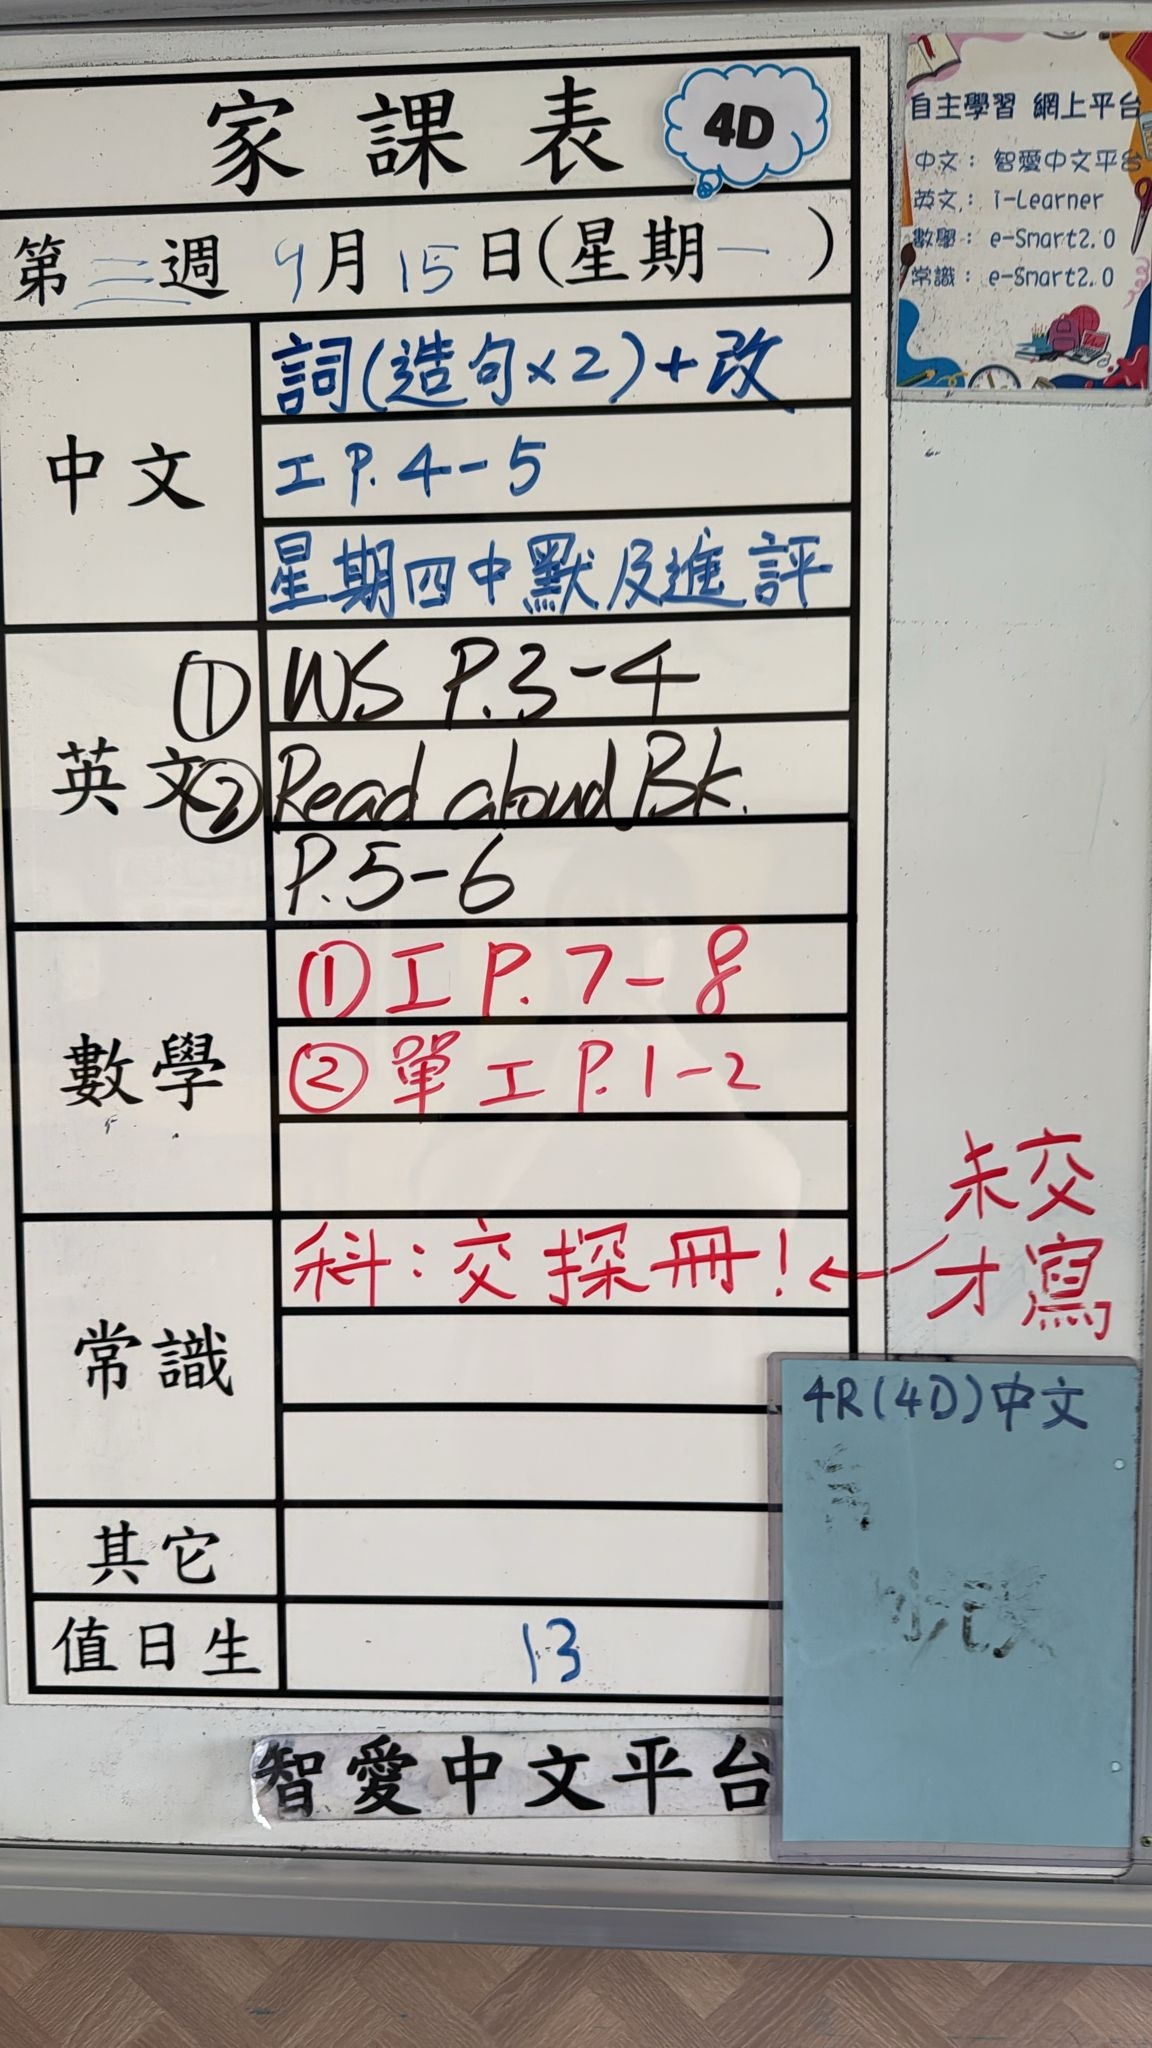 家課表 4D
第三週 9月15日(星期一)
中文
詞(造句x2)+改
工 P.4-5
星期四中默及進評
英文
① WS P.3-4
② Read aloud Bk.
P.5-6
數學
① 工 P.7-8
② 單工 P.1-2
常識
科:交探冊!
未交
才寫
其它
值日生
13
智愛中文平台
自主學習 網上平台
中文: 智愛中文平台
英文: i-Learner
數學: e-Smart2.0
常識: e-Smart2.0
4R(4D)中文